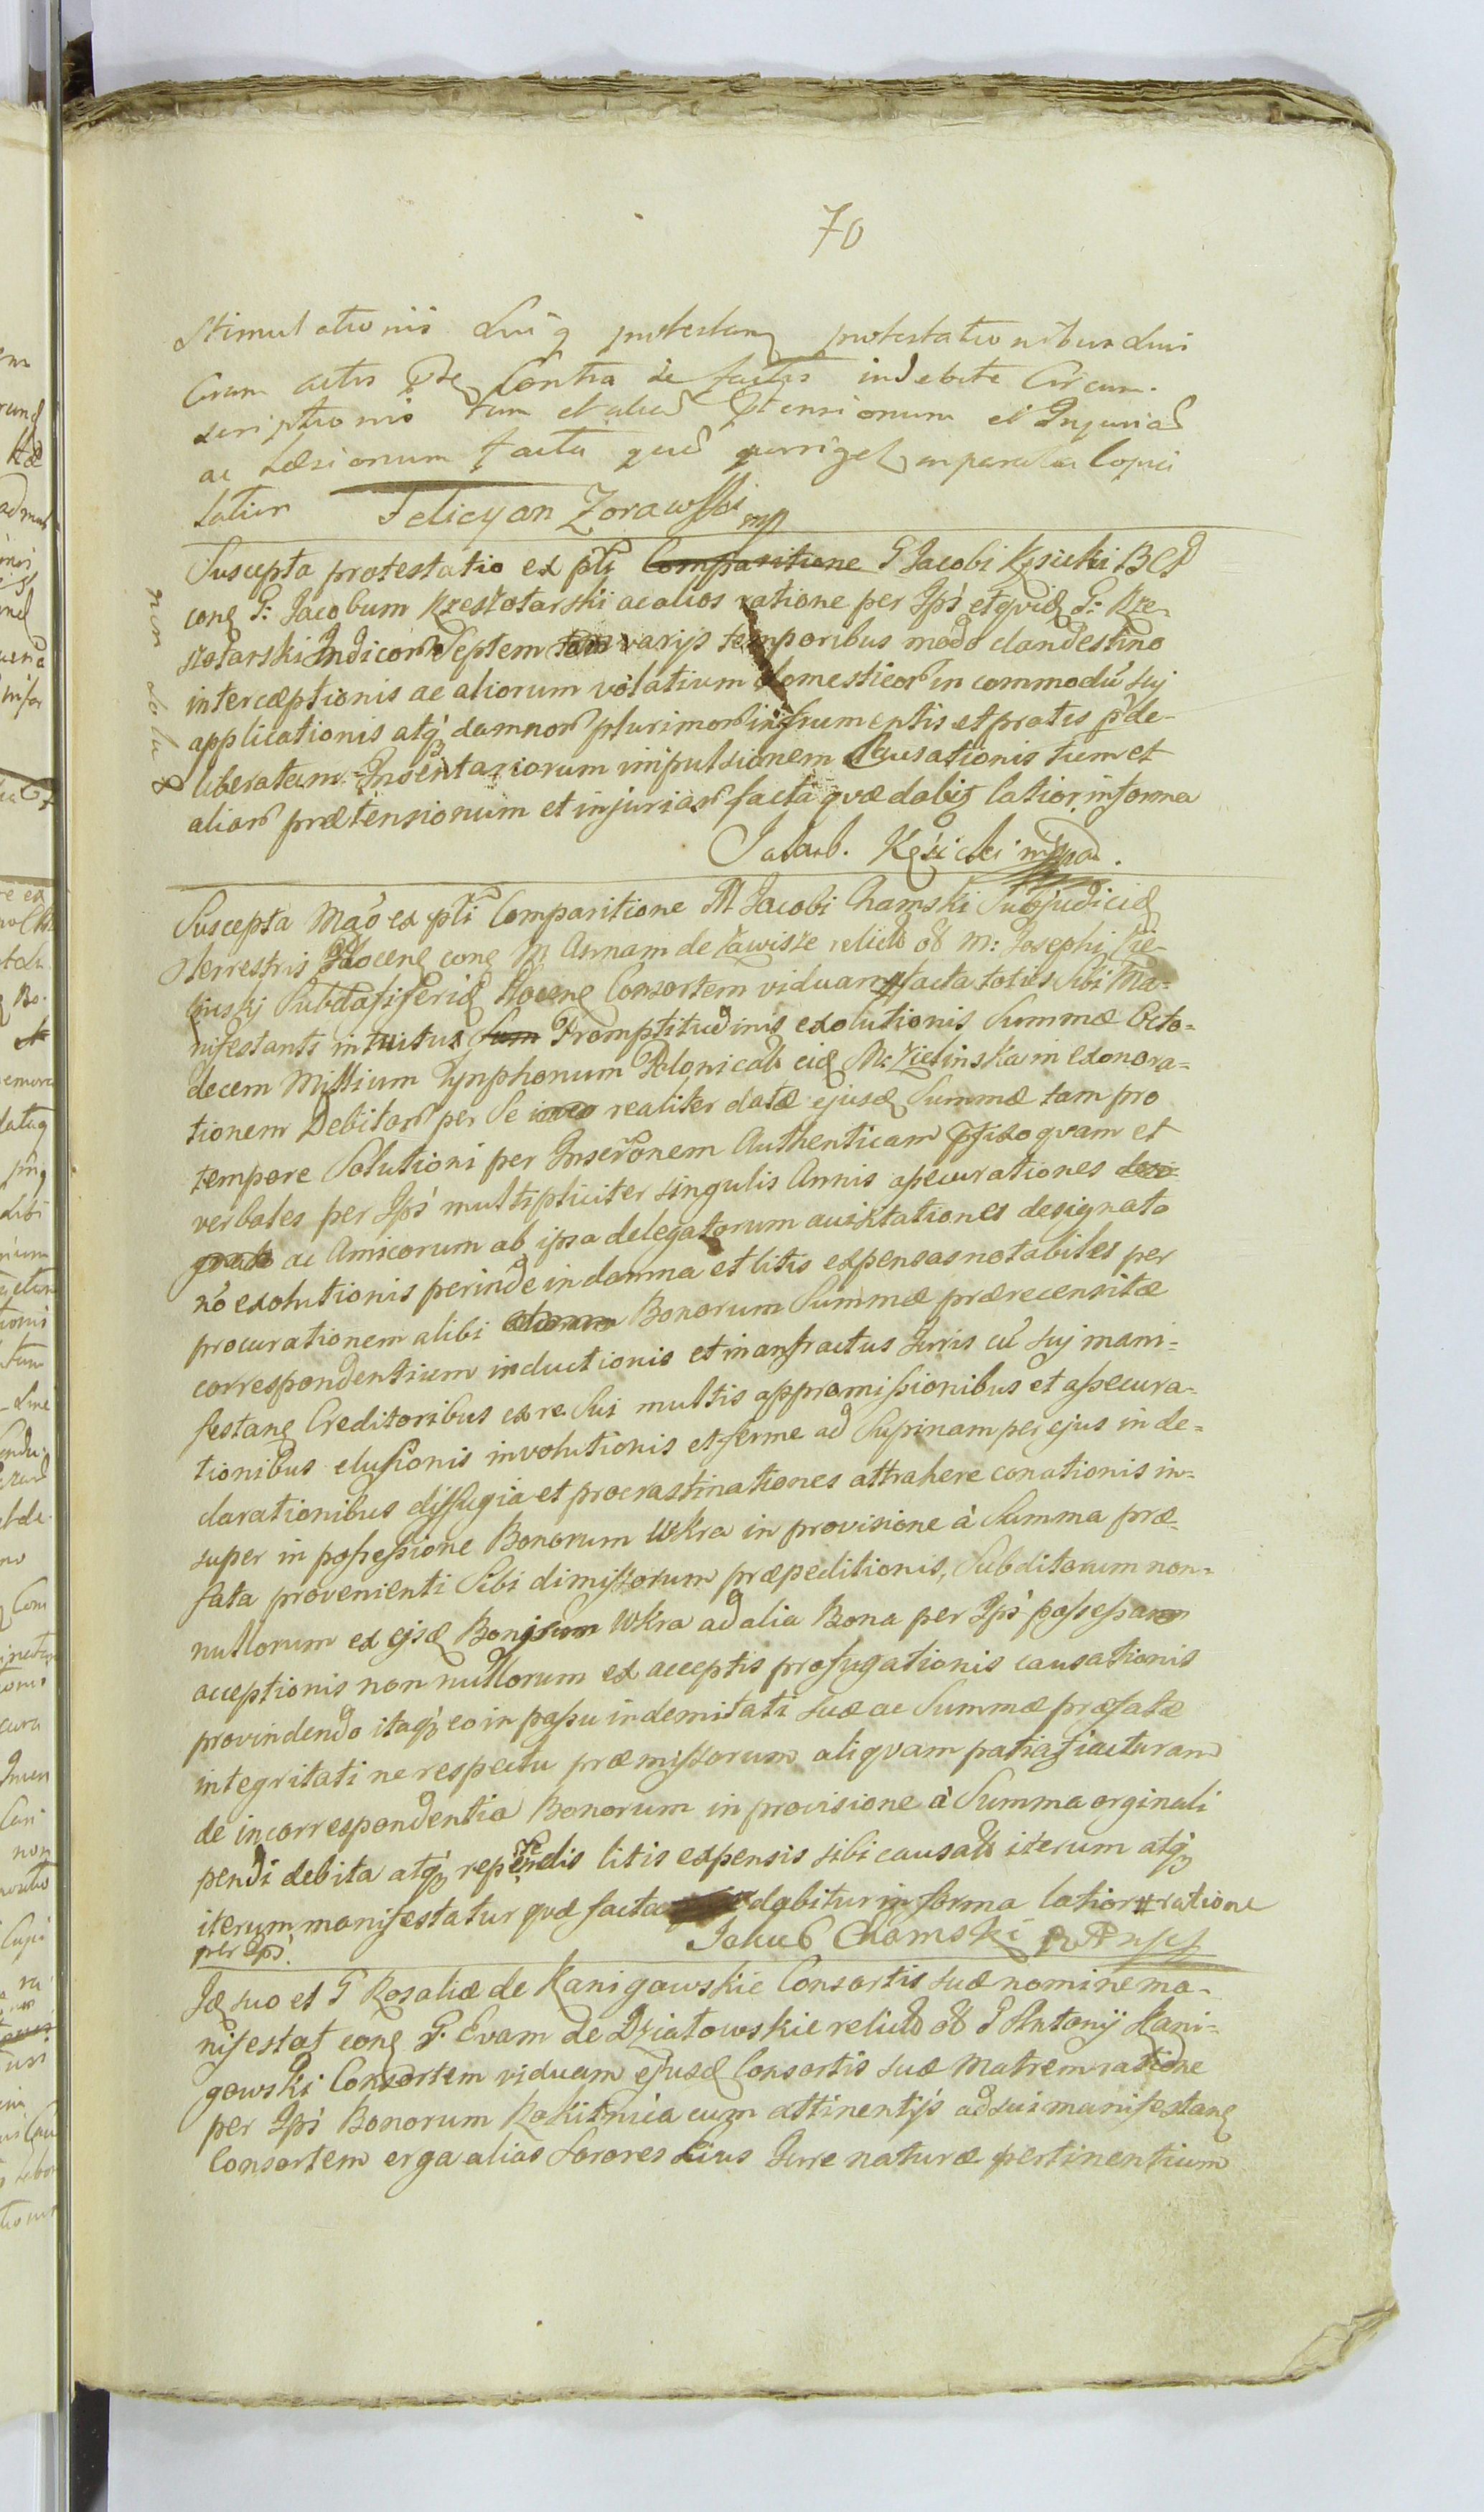 70
Stimulationis Sui protestanʒ protestationibus Sui
Cum actis contra de factis indebite Circum-
scriptionis tum et aliaꝝ Ptensionum et Injuriaꝝ
ac Læsionum facta quæ porriget in parata Copia
latior Felicyan Zorawski mp
non solut
Suscepta protestatio ex płi Comparitione G Jacobi Kęsicki BCP
conʒ G: Jacobum Krzeszotarski ac alios ratione per Ips̓ et G: Krze-
szotarski Indicoꝝ Septem varijs temporibus modo clandestino
interceptionis ac aliorum volatium domesticoꝝ in commodū suj
applicationis atq̓ damnoꝝ plurimoꝝ in frumentis et pratis p̄ de-
liberatam Inventariorum impulsionem Causationis tum et
aliaꝝ prætensionum et injuriaꝝ facta quæ dabiʒ latior in forma
Jakub. Kęsicki mpa.
Suscepta Maō ex płi Comparitione M Jacobi Chamski Subjudiciʒ
terrestris Płocenʒ conʒ M Annam de Zawisze relictā ōb M: Josephi Zie-
linskj Subdapiferiʒ Płocenʒ Consortem viduam # facta toties Sibi Ma-
nifestanti intuitus Sum Promptitudinis exolutionis Summæ Octo-
decem Millium Tynphonum Polonicalium eidʒ M: Zielinska in exonera-
tionem Debitoꝝ per Se realiter datæ ejusdʒ Summæ tam pro
tempore Solutioni per Inscrōnem Authenticam præfixo quam et
verbales per Ips̓ multipliciter singulis Annis assecurationes
ac Amicorum ab ipsa delegatorum avisitationes designato
nō exolutionis perinde in damna et litis expensas notabiles per
procurationem alibi Bonorum Summæ prærecensitæ
correspondentium inductionis et in anfractus Juris cū suj mani-
festanʒ Creditoribus ex re Sui multis appromissionibus et assecura-
tionibus elusionis involutionis et ferme ad Supinam per ejus in de-
clarationibus diffugia et procrastinationes attrahere conationis in-
super in possessione Bonorum Wkra in provisione à Summa præ-
fata provenienti Sibi dimissorum præpeditionis, Subditorum non-
nullorum ex ejsdʒ Bonis Wkra ad alia Bona per Ips̓ possessa
acceptionis non nullorum ex acceptis profugationis causationis
provindendo itaq̓ eo in passu indemitati suæ ac Summæ præfatæ
integritati ne respectu præmissorum aliquam patiaʒ jacturam
de incorrespondentia Bonorum in provisione à Summa orginali
pendi debita atq̓ repetendis litis expensis sibi causatis iterum atq̓
iterum manifestatur quæ facta dabitur in forma latior # ratione
per Ips̓. Jakub Chamski
Idʒ suo et G Rosaliæ de Kanigowskie Consortis suæ nomine ma-
nifestat conʒ G. Evam de Dziatowskie relictā ōb G Antonij Kani-
gowski Consortem viduam ejusdʒ Consortis suæ Matrem ratione
per Ips̓ Bonorum Rokitnica cum attinentijs ad sui manifestanʒ
Consortem erga alias Sorores Eius Jure naturæ pertinentium